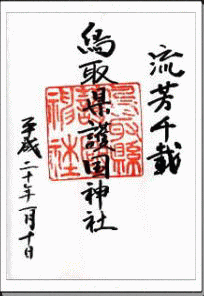 流芳千載
鳥取県護国神社
平成二十年一月十日
鳥取縣
護國
神社